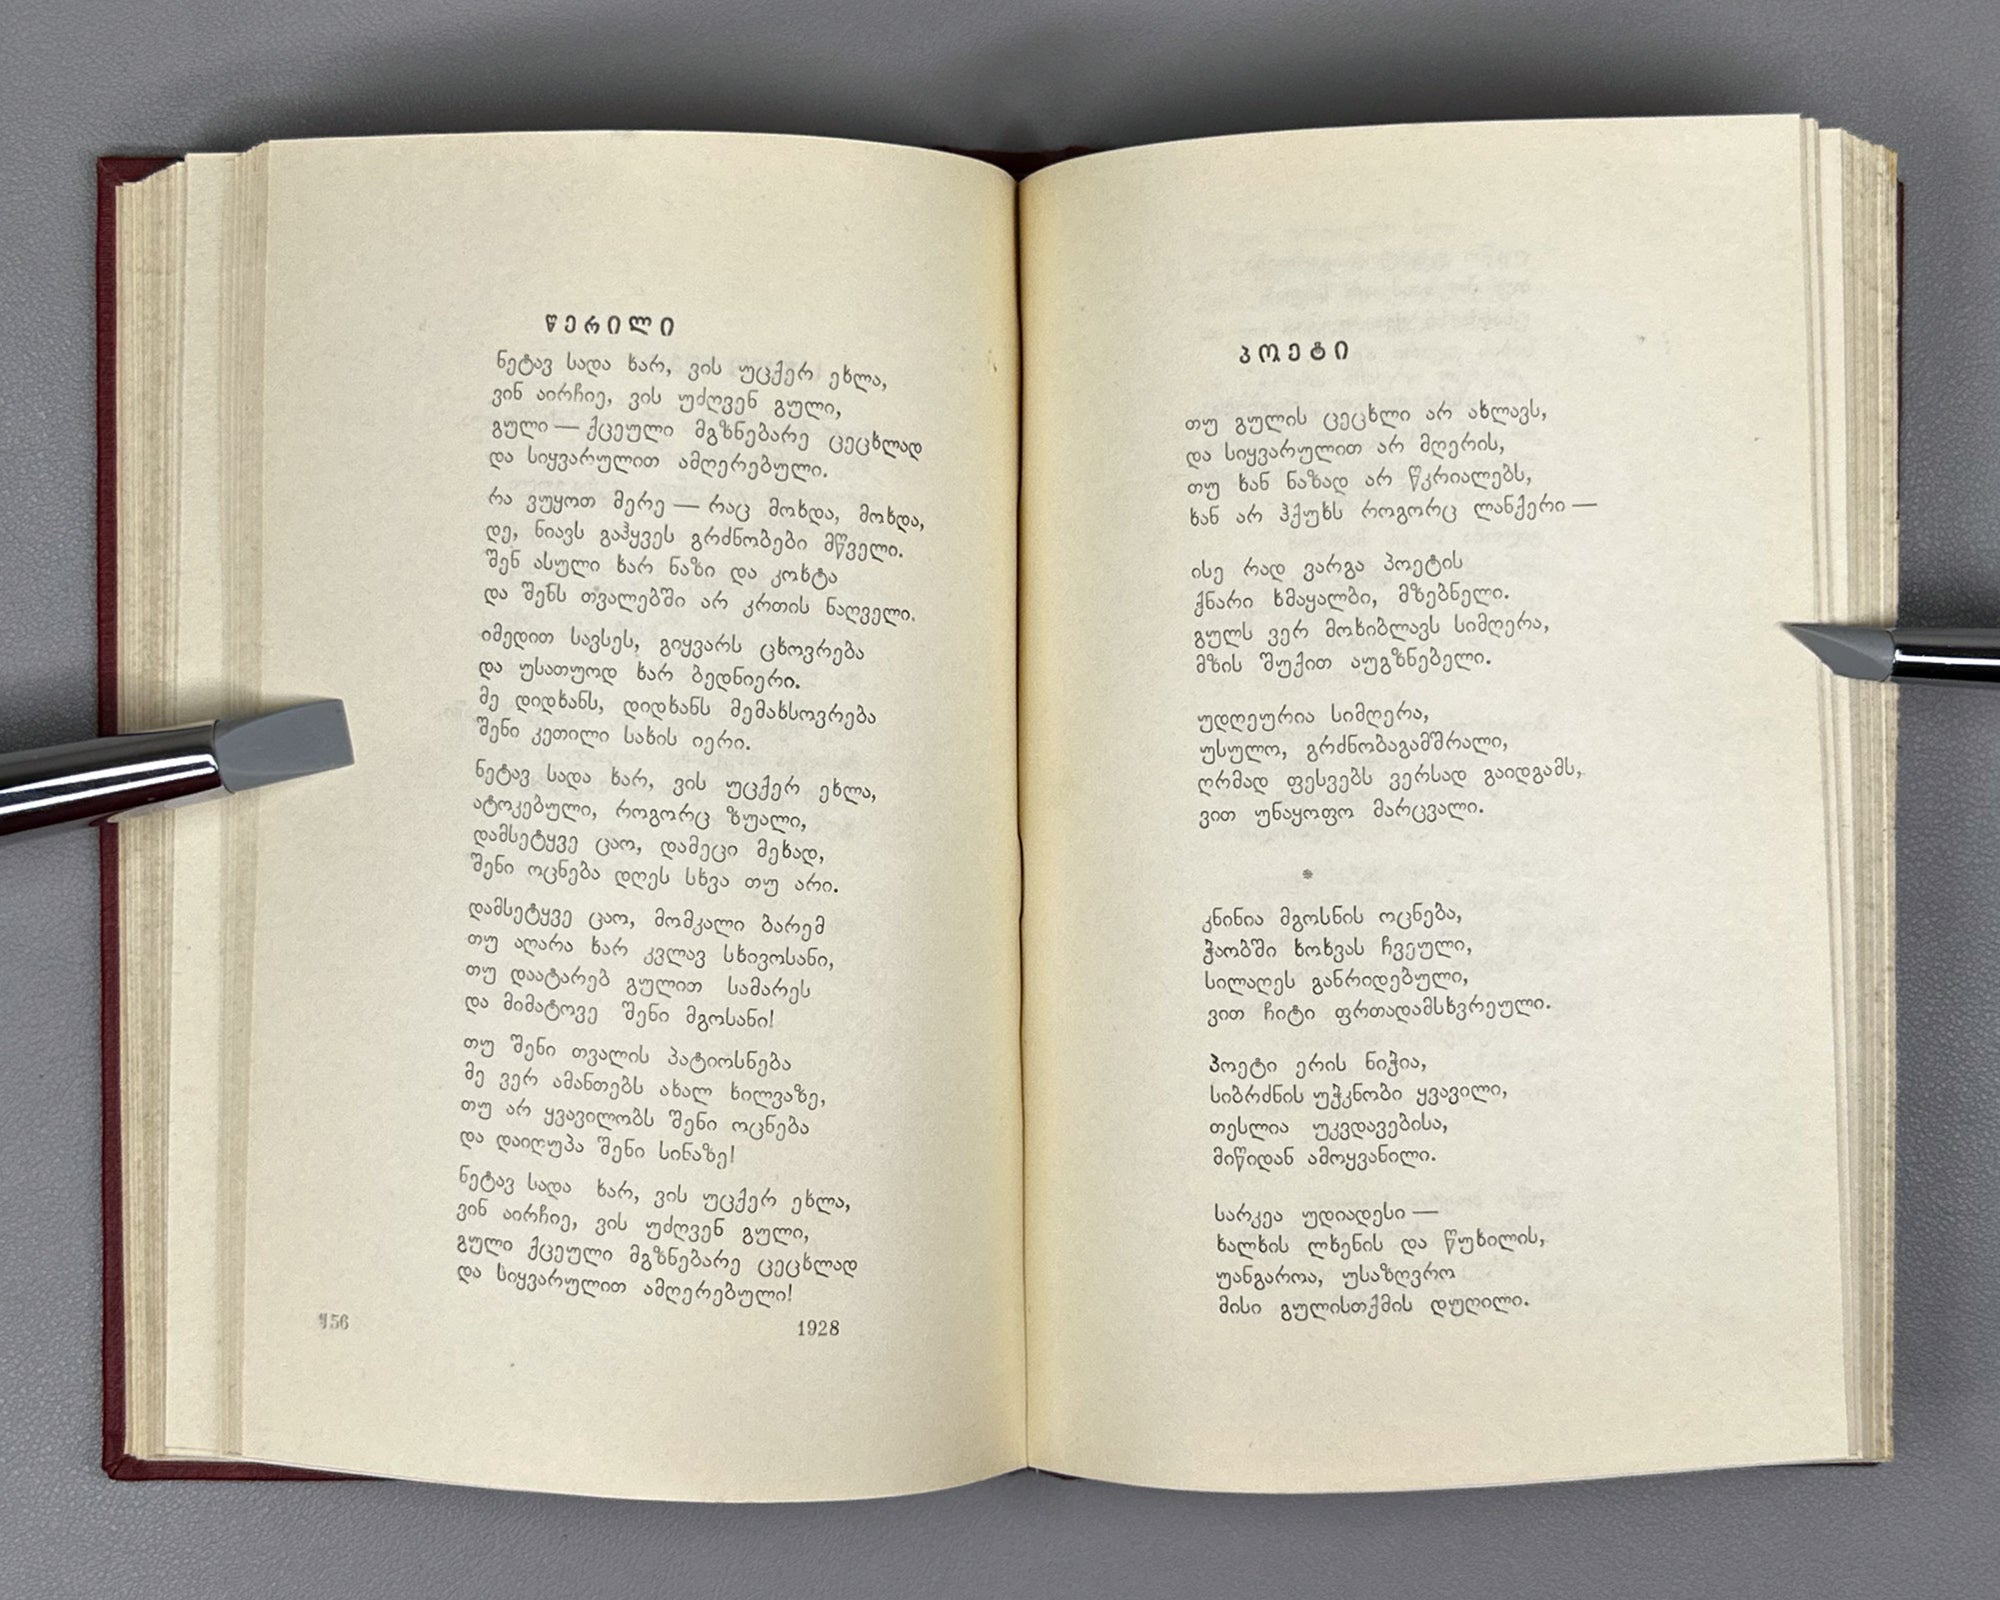 წერილი
ნეტავ სადა ხარ, ვის უცქერ ეხლა,
ვინ აირჩიე, ვის უძღვენ გული,
გული — ქცეული მგზნებარე ცეცხლად
და სიყვარულით ამღერებული.
რა ვუყოთ მერე — რაც მოხდა, მოხდა,
დე, ნიავს გაჰყვეს გრძნობები მწველი.
შენ ასული ხარ ნაზი და კოხტა
და შენს თვალებში არ კრთის ნაღველი.
იმედით სავსეს, გიყვარს ცხოვრება
და უსათუოდ ხარ ბედნიერი.
მე დიდხანს, დიდხანს მემახსოვრება
შენი კეთილი სახის იერი.
ნეტავ სადა ხარ, ვის უცქერ ეხლა,
ატოკებული, როგორც ზუალი,
დამსეტყვე ცაო, დამეცი მეხად,
შენი ოცნება დღეს სხვა თუ არი.
დამსეტყვე ცაო, მომკალი ბარემ
თუ აღარა ხარ კვლავ სხივოსანი,
თუ დაატარებ გულით სამარეს
და მიმატოვე შენი მგოსანი!
თუ შენი თვალის პატიოსნება
მე ვერ ამანთებს ახალ ხილვაზე,
თუ არ ყვავილობს შენი ოცნება
და დაიღუპა შენი სინაზე!
ნეტავ სადა ხარ, ვის უცქერ ეხლა,
ვინ აირჩიე, ვის უძღვენ გული,
გული ქცეული მგზნებარე ცეცხლად
და სიყვარულით ამღერებული!
1928
156
პოეტი
თუ გულის ცეცხლი არ ახლავს,
და სიყვარულით არ მღერის,
თუ ხან ნაზად არ წკრიალებს,
ხან არ ჰქუხს როგორც ლანქერი —
ისე რად ვარგა პოეტის
ქნარი ხმაყალბი, მზებნელი.
გულს ვერ მოხიბლავს სიმღერა,
მზის შუქით აუგზნებელი.
უდღეურია სიმღერა,
უსულო, გრძნობაგამშრალი,
ღრმად ფესვებს ვერსად გაიდგამს,
ვით უნაყოფო მარცვალი.
*
კნინია მგოსნის ოცნება,
ჭაობში ხოხვას ჩვეული,
სილაღეს განრიდებული,
ვით ჩიტი ფრთადამსხვრეული.
პოეტი ერის ნიჭია,
სიბრძნის უჭკნობი ყვავილი,
თესლია უკვდავებისა,
მიწიდან ამოყვანილი.
სარკეა უდიადესი —
ხალხის ლხენის და წუხილის,
უანგაროა, უსაზღვრო
მისი გულისთქმის დუღილი.